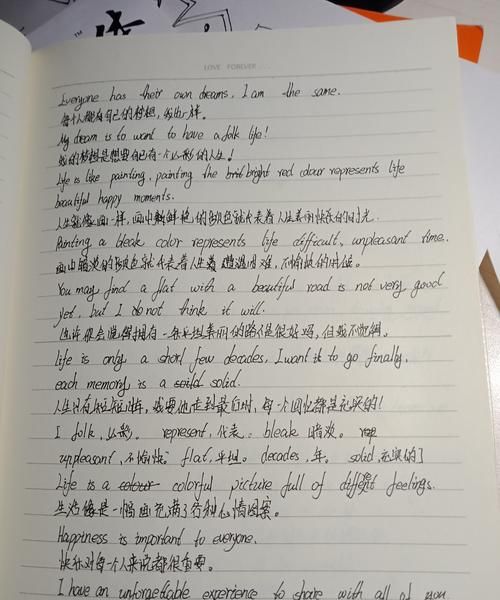 LOVE FOREVER...
Everyone has their own dreams, I am the same.
每个人都有自己的梦想，我也一样。
My dream is to want to have a folk life!
我的梦想是想要自己有一个多彩的人生！
Life is like painting, painting the bright red colour represents life
beautiful happy moments.
人生就像画一样，画中鲜艳的颜色就代表着人生美丽快乐的时光.
Painting a bleak color represents life difficult, unpleasant time.
画中暗淡的颜色就代表着人生着遭遇困难，不愉快的时候。
You may find a flat with a beautiful road is not very good
yet, but I do not think it will.
也许你会觉得拥有一条平坦美丽的路不是很好吗，但我不觉得。
Life is only a short few decades, I want it to go finally,
each memory is a solid.
人生只有短短几年，我要他走到最后时，每一个回忆都是充实的！
I folk, 多彩. represent, 代表. bleak 暗淡。
unpleasant, 不愉快. flat, 平坦. decades, 年。 solid, 充实的]
Life is a colour colorful picture full of different feelings.
生活像是一幅画充满了各种心情图案。
Happiness is important to everyone.
快乐对每个人来说都很重要。
I have an unforgettable experience to share with all of you